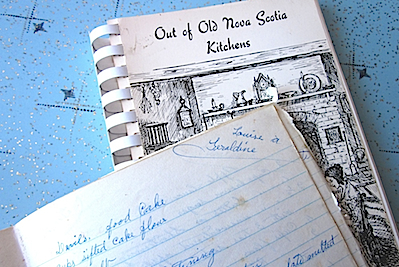 Out of Old Nova Scotia
Kitchens
Louise &
Geraldine
Devils food Cake
sifted cake flour
melted